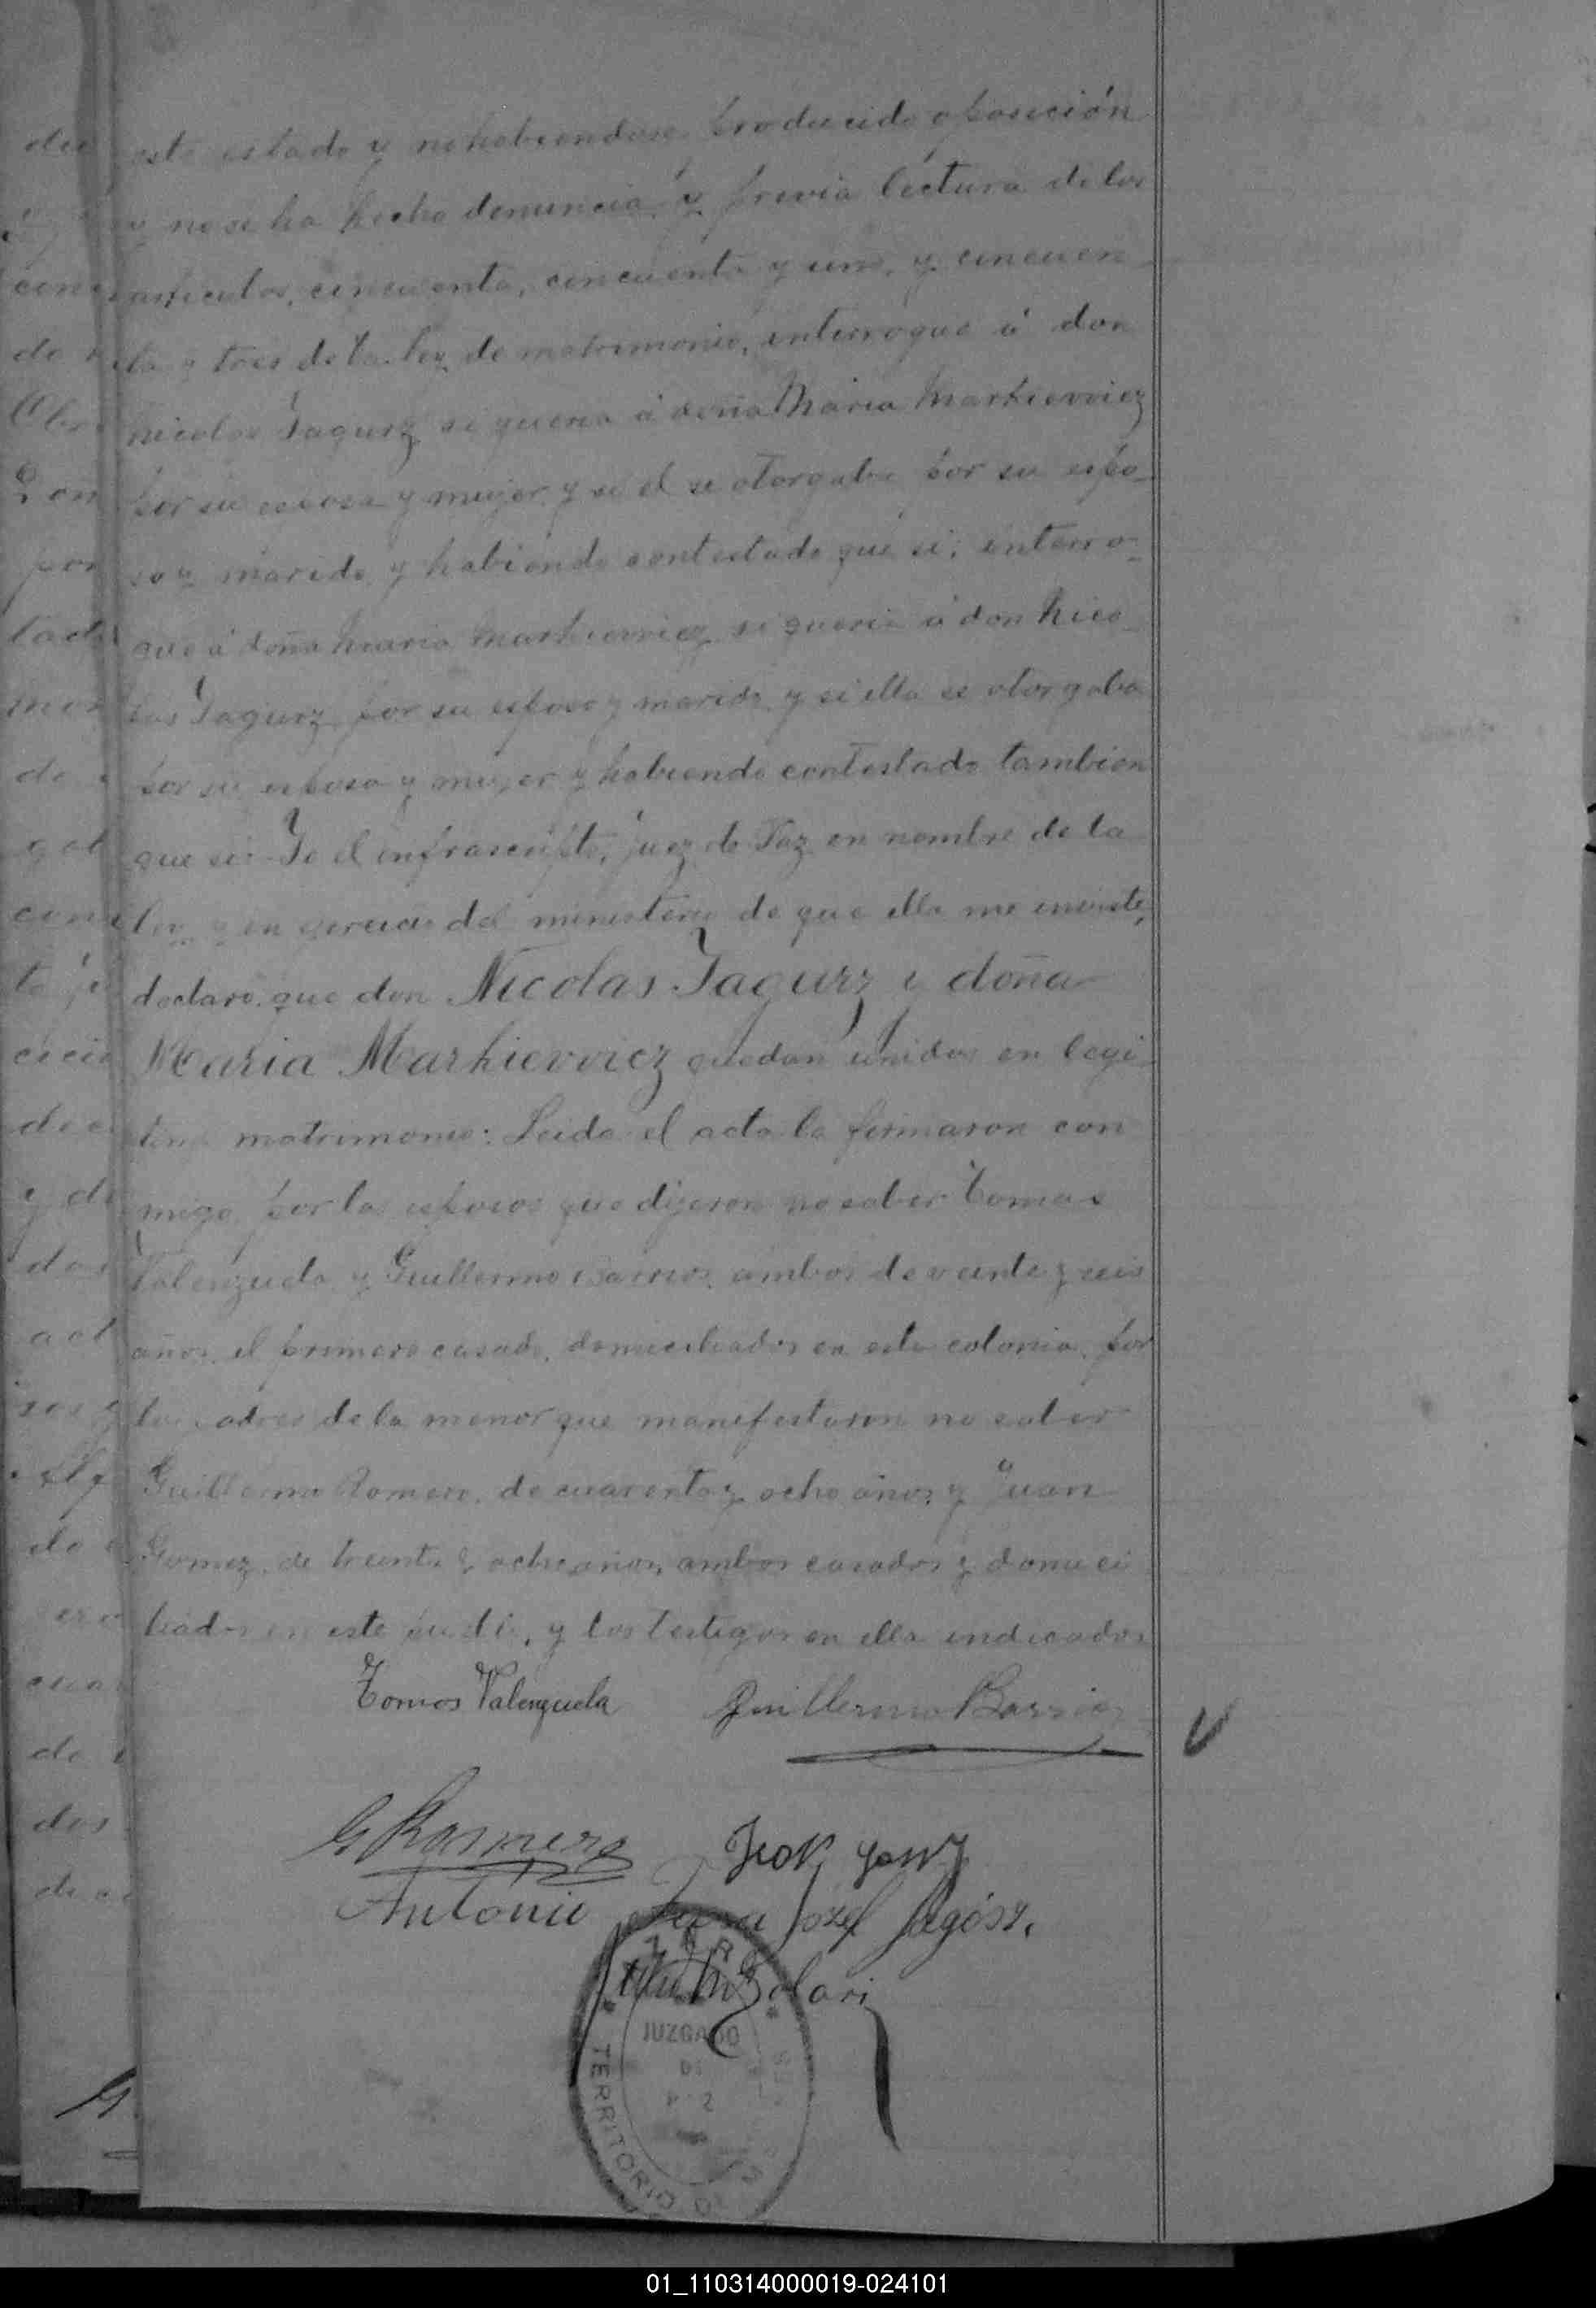 este estado y no habiendose producido oposición
y no se ha hecho denuncia y previa lectura de los
articulos, cincuenta, cincuenta y uno, y cincuen
ta y tres de la ley de matrimonio, interrogue á don
Nicolas Jagurz si queria á doña Maria Markievviez
por su esposa y mujer y si el se otorgaba por su espo-
so y marido y habiendo contestado que si; interro-
gue á doña Maria Markievviez si queria á don Nico-
las Jagurz por su esposo y marido y si ella se otorgaba
por su esposa y mujer y habiendo contestado tambien
que si: Yo el infrascripto, Juez de Paz en nombre de la
ley y en ejercicio del ministerio de que ella me inviste,
declaro que don Nicolas Jagurz i doña
Maria Markievvicz quedan unidos en legi
timo matrimonio: Leida el acta la firmaron con
migo, por los esposos que dijeron no saber Tomas
Valenzuela y Guillermo Barrios, ambos de veinte y seis
años, el primero casado, domiciliados en esta colonia, por
los padres de la menor que manifestaron no saber
Guillermo Romero, de cuarenta y ocho años y Juan
Gomez, de treinta y ocho años, ambos casados y domici
liados en este pueblo, y los testigos en ella indicados
Tomas Valenzuela Guillermo Barrios
G Rommero
Antonio Jozef
Solari
JUZGADO
DE
PAZ
TERRITORIO DE
01_110314000019-024101